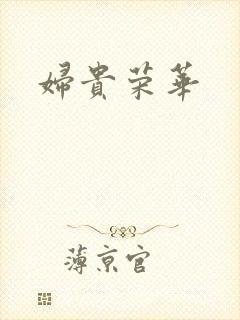 婦貴荣華
薄京官